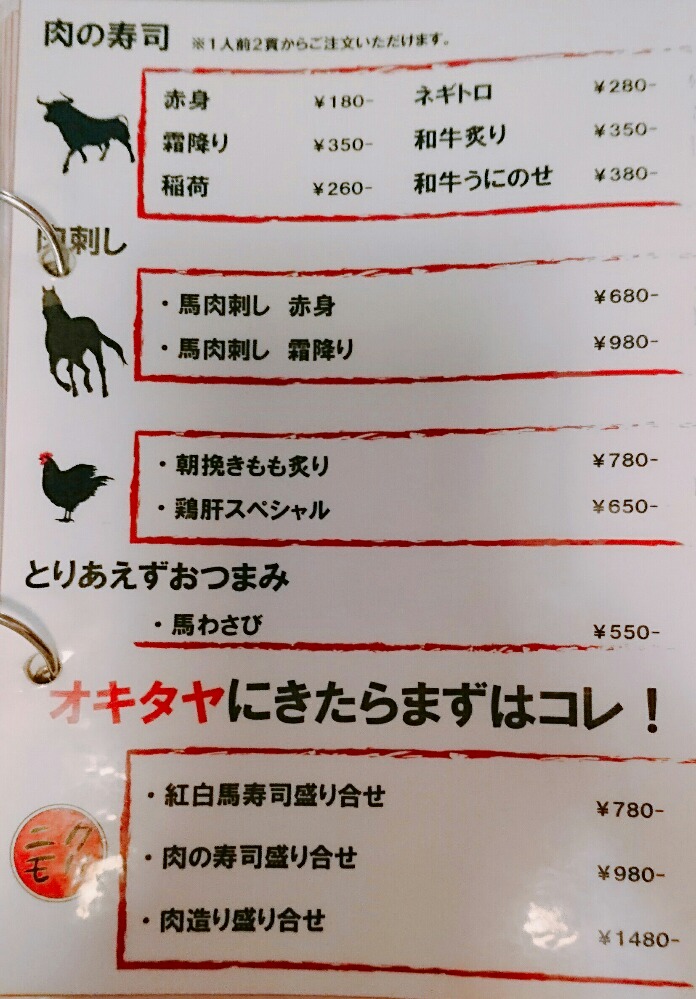 肉の寿司 ※1人前2貫からご注文いただけます。
赤身 ¥180- ネギトロ ¥280-
霜降り ¥350- 和牛炙り ¥350-
稲荷 ¥260- 和牛うにのせ ¥380-
肉刺し
・馬肉刺し 赤身 ¥680-
・馬肉刺し 霜降り ¥980-
・朝挽きもも炙り ¥780-
・鶏肝スペシャル ¥650-
とりあえずおつまみ
・馬わさび ¥550-
オキタヤにきたらまずはコレ！
・紅白馬寿司盛り合せ ¥780-
・肉の寿司盛り合せ ¥980-
・肉造り盛り合せ ¥1480-